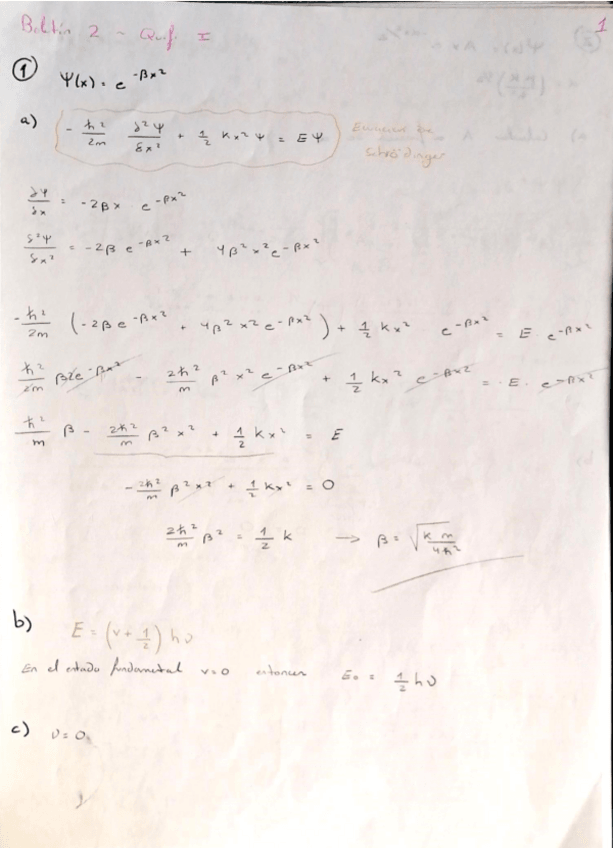 Boletín 2 - Quif. I
1
① Ψ(x) = e^{-βx²}
a) -ħ²/2m δ²Ψ/δx² + 1/2 Kx² Ψ = E Ψ
Ecuación de
Schrödinger
δΨ/δx = -2βx e^{-βx²}
δ²Ψ/δx² = -2β e^{-βx²} + 4β² x² e^{-βx²}
-ħ²/2m (-2β e^{-βx²} + 4β² x² e^{-βx²}) + 1/2 Kx² e^{-βx²} = E · e^{-βx²}
ħ²/2m β2e^{-βx²} - 2ħ²/m β² x² e^{-βx²} + 1/2 Kx² e^{-βx²} = · E · e^{-βx²}
ħ²/m β - 2ħ²/m β² x² + 1/2 Kx² = E
-2ħ²/m β² x² + 1/2 Kx² = 0
2ħ²/m β² = 1/2 k → β = √(K m/4ħ²)
b) E = (v + 1/2) hυ
En el estado fundamental v=0 entonces E₀ = 1/2 hυ
c) υ = 0